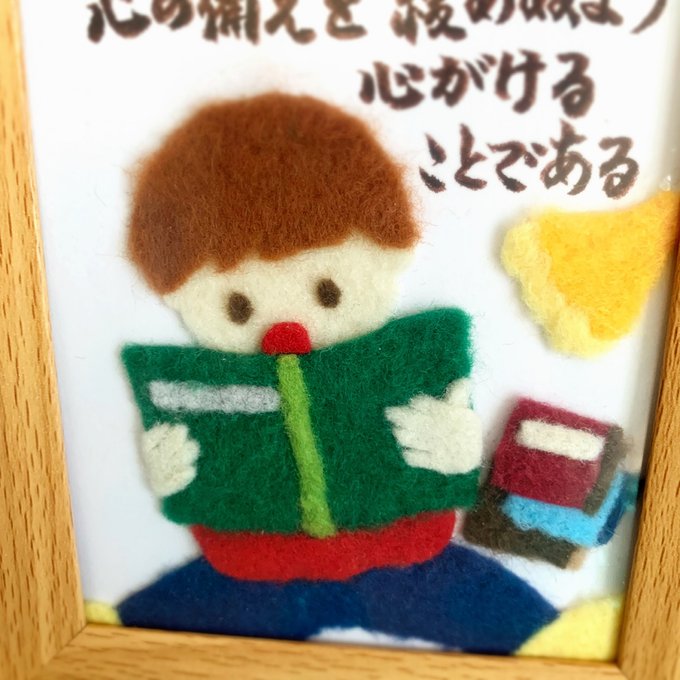 心の備えを緩めぬよう
心がける
ことである